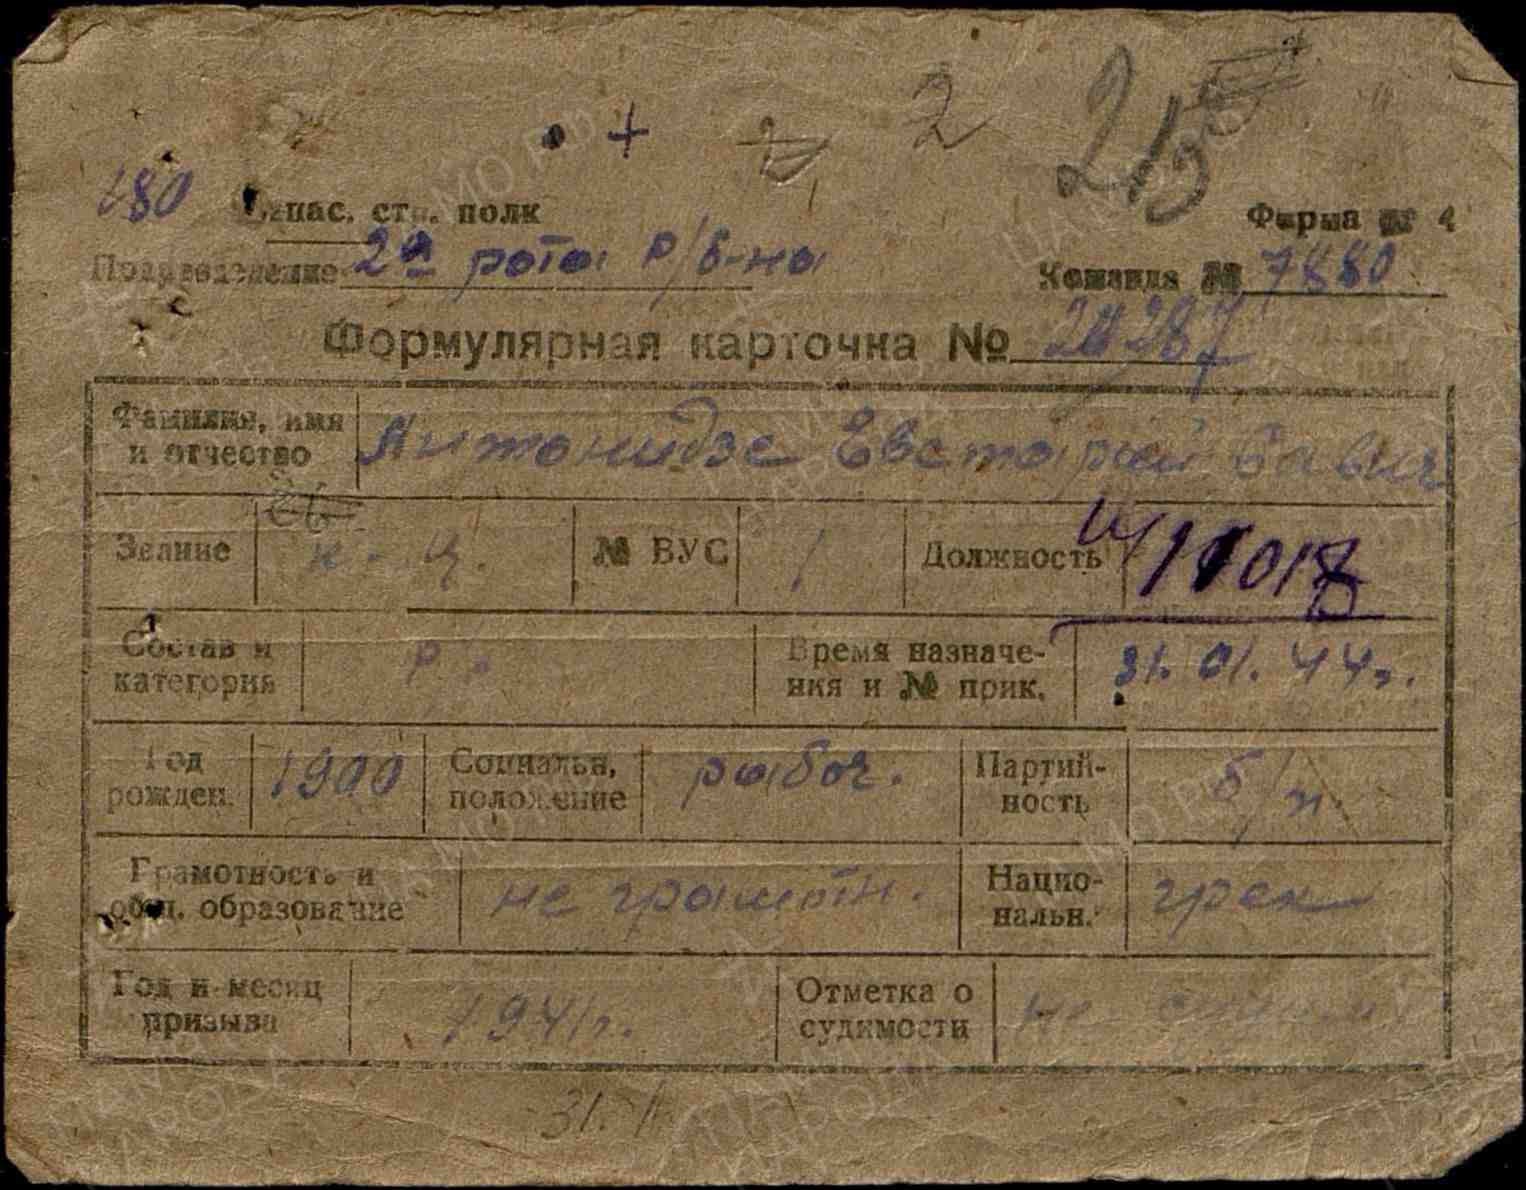 2
180 Запас. стр. полк
Форма № 4
Подразделение 2я рота р/б-на
Команда № 7880
Формулярная карточка №
Фамилия, имя и отчество Антонидзе Евстафий Савич
Звание к-ц. № ВУС 1 Должность
Состав и категория р. Время назначения и № прик. 31.01.44г.
Год рожден. 1900 Социальн. положение рабоч. Партийность б/п.
Грамотность и общ. образование не грамотн. Националь. грек
Год и месяц призыва 1941г. Отметка о судимости не
31.1